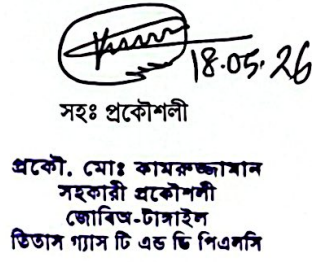 18.05.26
সহঃ প্রকৌশলী
প্রকৌ. মোঃ কামরুজ্জামান
সহকারী প্রকৌশলী
জোবিঅ-টাঙ্গাইল
তিতাস গ্যাস টি এন্ড ডি পিএলসি